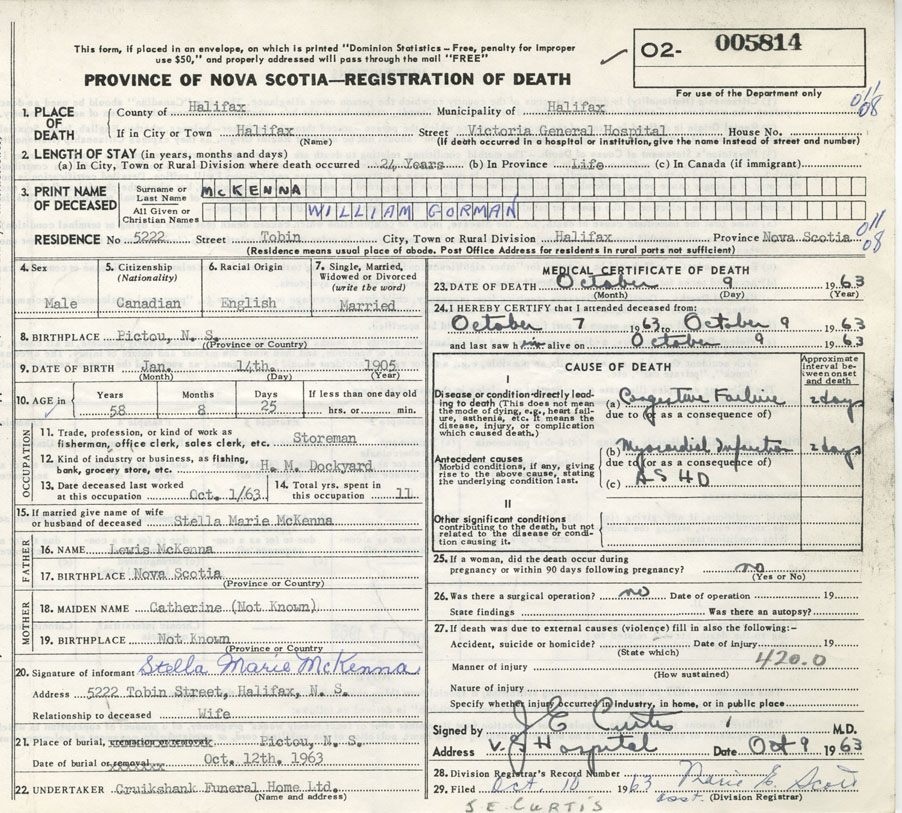 This form, if placed in an envelope, on which is printed "Dominion Statistics – Free, penalty for improper
use $50," and properly addressed will pass through the mail "FREE"
02- 005814
For use of the Department only
PROVINCE OF NOVA SCOTIA—REGISTRATION OF DEATH
011
08
1. PLACE OF DEATH County of Halifax Municipality of Halifax
If in City or Town Halifax (Name) Street Victoria General Hospital House No.
(If death occurred in a hospital or institution, give the name instead of street and number)
2. LENGTH OF STAY (in years, months and days)
(a) In City, Town or Rural Division where death occurred 24 Years (b) In Province Life (c) In Canada (if immigrant)
3. PRINT NAME OF DECEASED Surname or Last Name McKENNA
All Given or Christian Names WILLIAM GORMAN
011
08
RESIDENCE No 5222 Street Tobin City, Town or Rural Division Halifax Province Nova Scotia
(Residence means usual place of abode. Post Office Address for residents in rural parts not sufficient)
4. Sex Male
5. Citizenship (Nationality) Canadian
6. Racial Origin English
7. Single, Married, Widowed or Divorced (write the word) Married
8. BIRTHPLACE Pictou, N. S.
(Province or Country)
9. DATE OF BIRTH Jan. 14th. 1905
(Month) (Day) (Year)
10. AGE in Years 58 Months 8 Days 25 If less than one day old hrs. or min.
OCCUPATION
11. Trade, profession, or kind of work as
fisherman, office clerk, sales clerk, etc. Storeman
12. Kind of industry or business, as fishing,
bank, grocery store, etc. H. M. Dockyard
13. Date deceased last worked
at this occupation Oct. 1/63
14. Total yrs. spent in
this occupation 11
15. If married give name of wife
or husband of deceased Stella Marie McKenna
FATHER
16. NAME Lewis McKenna
17. BIRTHPLACE Nova Scotia
(Province or Country)
MOTHER
18. MAIDEN NAME Catherine (Not Known)
19. BIRTHPLACE Not Known
(Province or Country)
20. Signature of informant Stella Marie McKenna
Address 5222 Tobin Street, Halifax, N. S.
Relationship to deceased Wife
21. Place of burial, cremation or removal Pictou, N. S.
Date of burial or removal Oct. 12th. 1963
22. UNDERTAKER Cruikshank Funeral Home Ltd.
(Name and address)
MEDICAL CERTIFICATE OF DEATH
23. DATE OF DEATH October 9 1963
(Month) (Day) (Year)
24. I HEREBY CERTIFY that I attended deceased from:
October 7 1963 to October 9 1963
and last saw him alive on October 9 1963
CAUSE OF DEATH
Approximate interval between onset and death
I
Disease or condition directly leading
to death (This does not mean
the mode of dying, e.g., heart failure,
asthenia, etc. It means the
disease, injury, or complication
which caused death.)
(a) Congestive Failure 2 days
due to (or as a consequence of)
Antecedent causes
Morbid conditions, if any, giving
rise to the above cause, stating
the underlying condition last.
(b) Myocardial Infarction 2 days
due to (or as a consequence of)
(c) ASHD
II
Other significant conditions
contributing to the death, but not
related to the disease or condition
causing it.
25. If a woman, did the death occur during
pregnancy or within 90 days following pregnancy? no
(Yes or No)
26. Was there a surgical operation? no Date of operation 19
State findings Was there an autopsy?
27. If death was due to external causes (violence) fill in also the following:–
Accident, suicide or homicide? Date of injury 19
(State which)
420.0
Manner of injury
(How sustained)
Nature of injury
Specify whether injury occurred in industry, in home, or in public place
Signed by J E Curtis M.D.
Address V. G Hospital Date Oct 9 1963
28. Division Registrar's Record Number
29. Filed Oct. 10 1963 Marie E. Scott
asst. (Division Registrar)
J E CURTIS